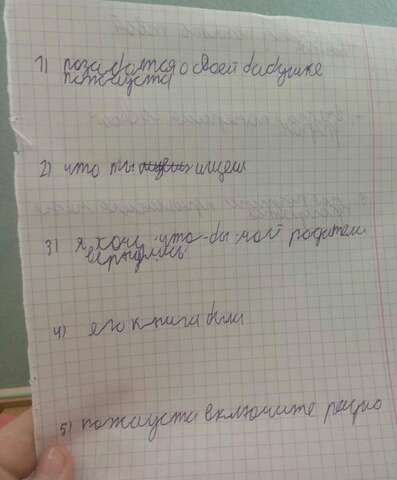 1) позаботятся о своей бабушке
пожауста
2) что ты ищеш
3) я хочу что-бы мой родители
вернулись
4) его книга были
5) пожауста включите радио